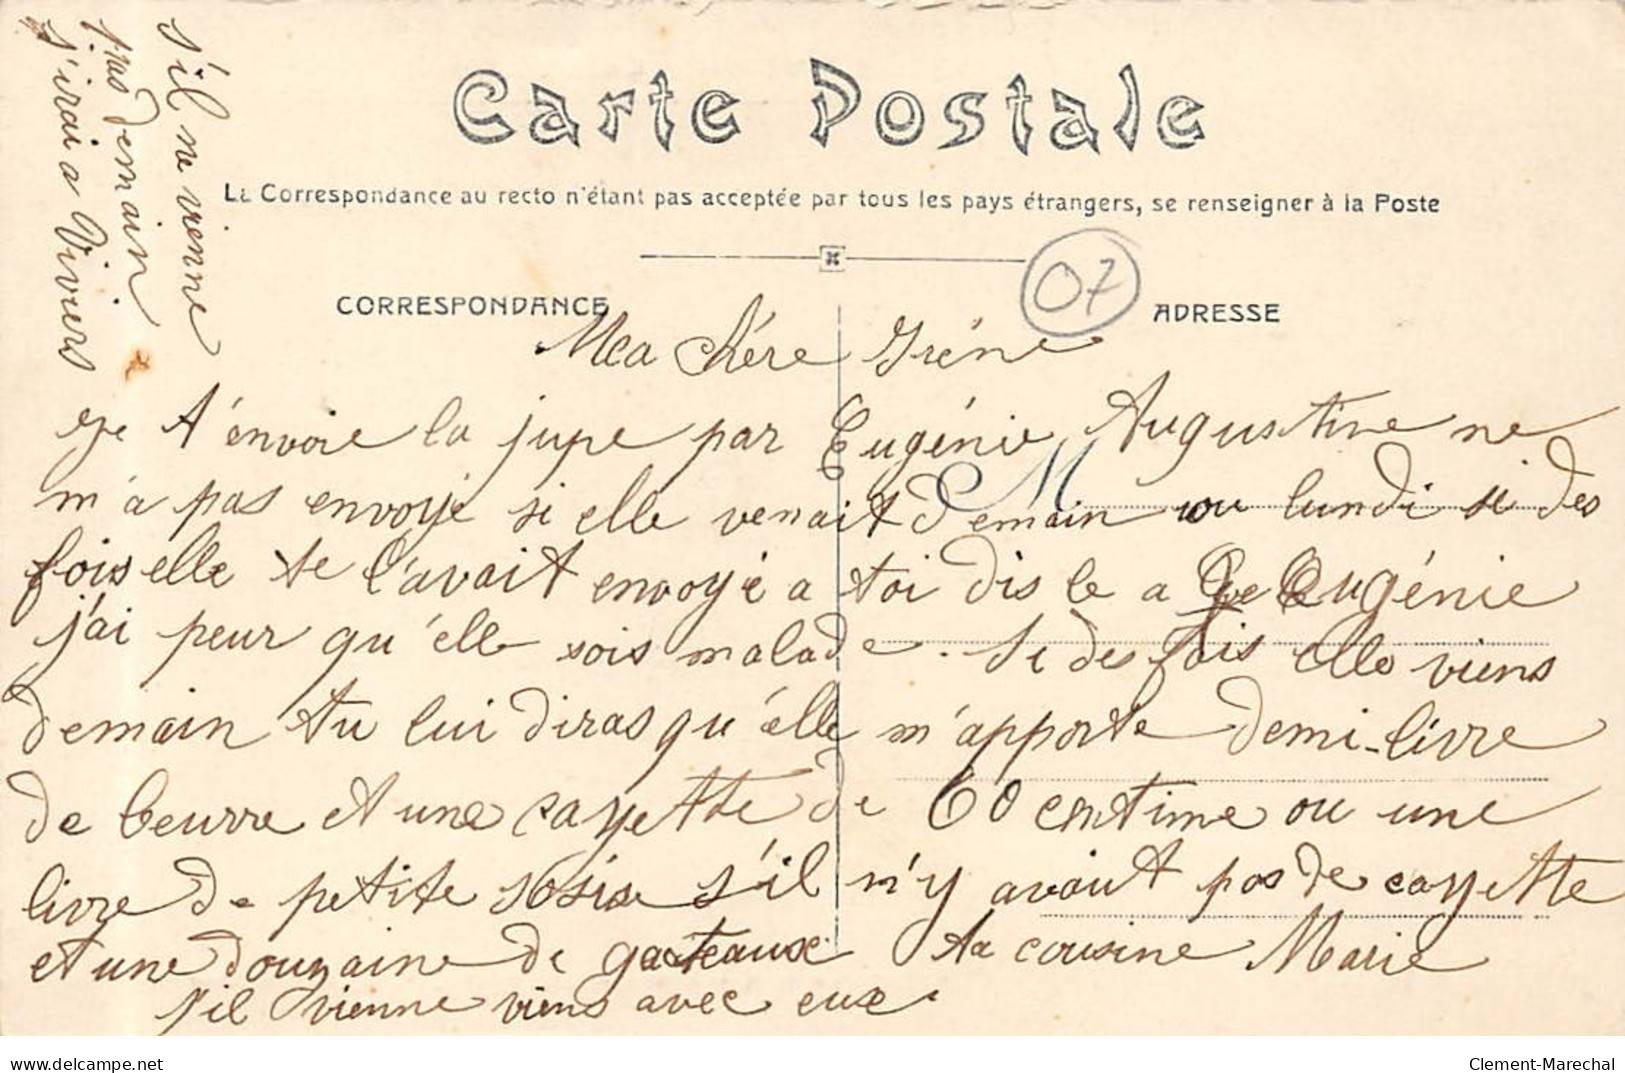 Carte Postale
La Correspondance au recto n'étant pas acceptée par tous les pays étrangers, se renseigner à la Poste
07
CORRESPONDANCE
ADRESSE
Ma chére Iréne
Je t'énvoie la jupe par Eugénie Augustine ne
m'a pas envoyé si elle venait demain ou lundi si des
fois elle te l'avait envoyé a toi dis le a Eugénie
j'ai peur qu'élle sois malade. Si des fois elle viens
demain tu lui diras qu'élle m'apporte demi-livre
de beurre et une cayette de 60 centime ou une
livre de petite sosise s'il n'y avait pas de cayette
et une douzaine de gateaux ta cousine Marie
s'il vienne viens avec eux.
s'il ne vienne
pas demain
j'irai a Viviers
delcampe.net
Clement-Marechal